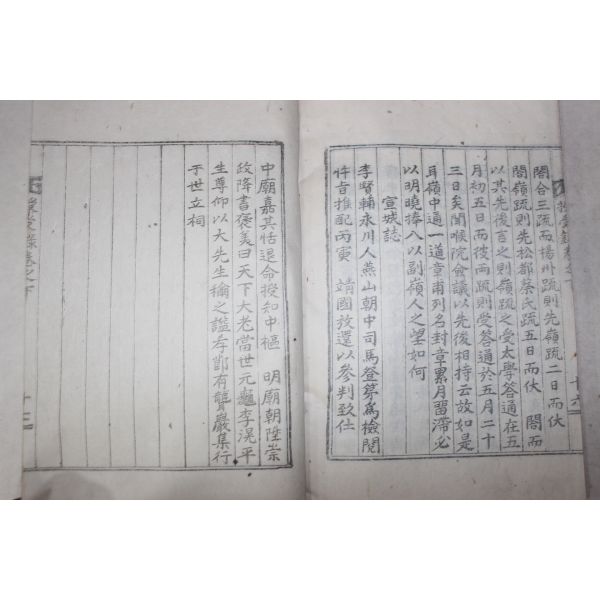 閤合三疏而楊州疏則先嶺疏二日而伏
閤嶺疏則先松都蔡氏疏五日而伏 閤而
以其先後言之則嶺疏之受太學答通在五
月初五日而彼兩疏則受答通於五月二十
三日矣聞喉院會議以先後相持云故如是
耳嶺中通一道章甫列名封章累月習滯必
以明曉捧入以副嶺人之望如何
宣城誌
李賢輔永川人燕山朝中司馬登第爲檢閱
忤旨推配丙寅 靖國放還以參判致仕
中廟嘉其恬退命授知中樞 明廟朝陞崇
政降書褒美曰天下大老當世元龜李滉平
生尊仰以大先生稱之諡孝節有聾巖集行
于世立祠